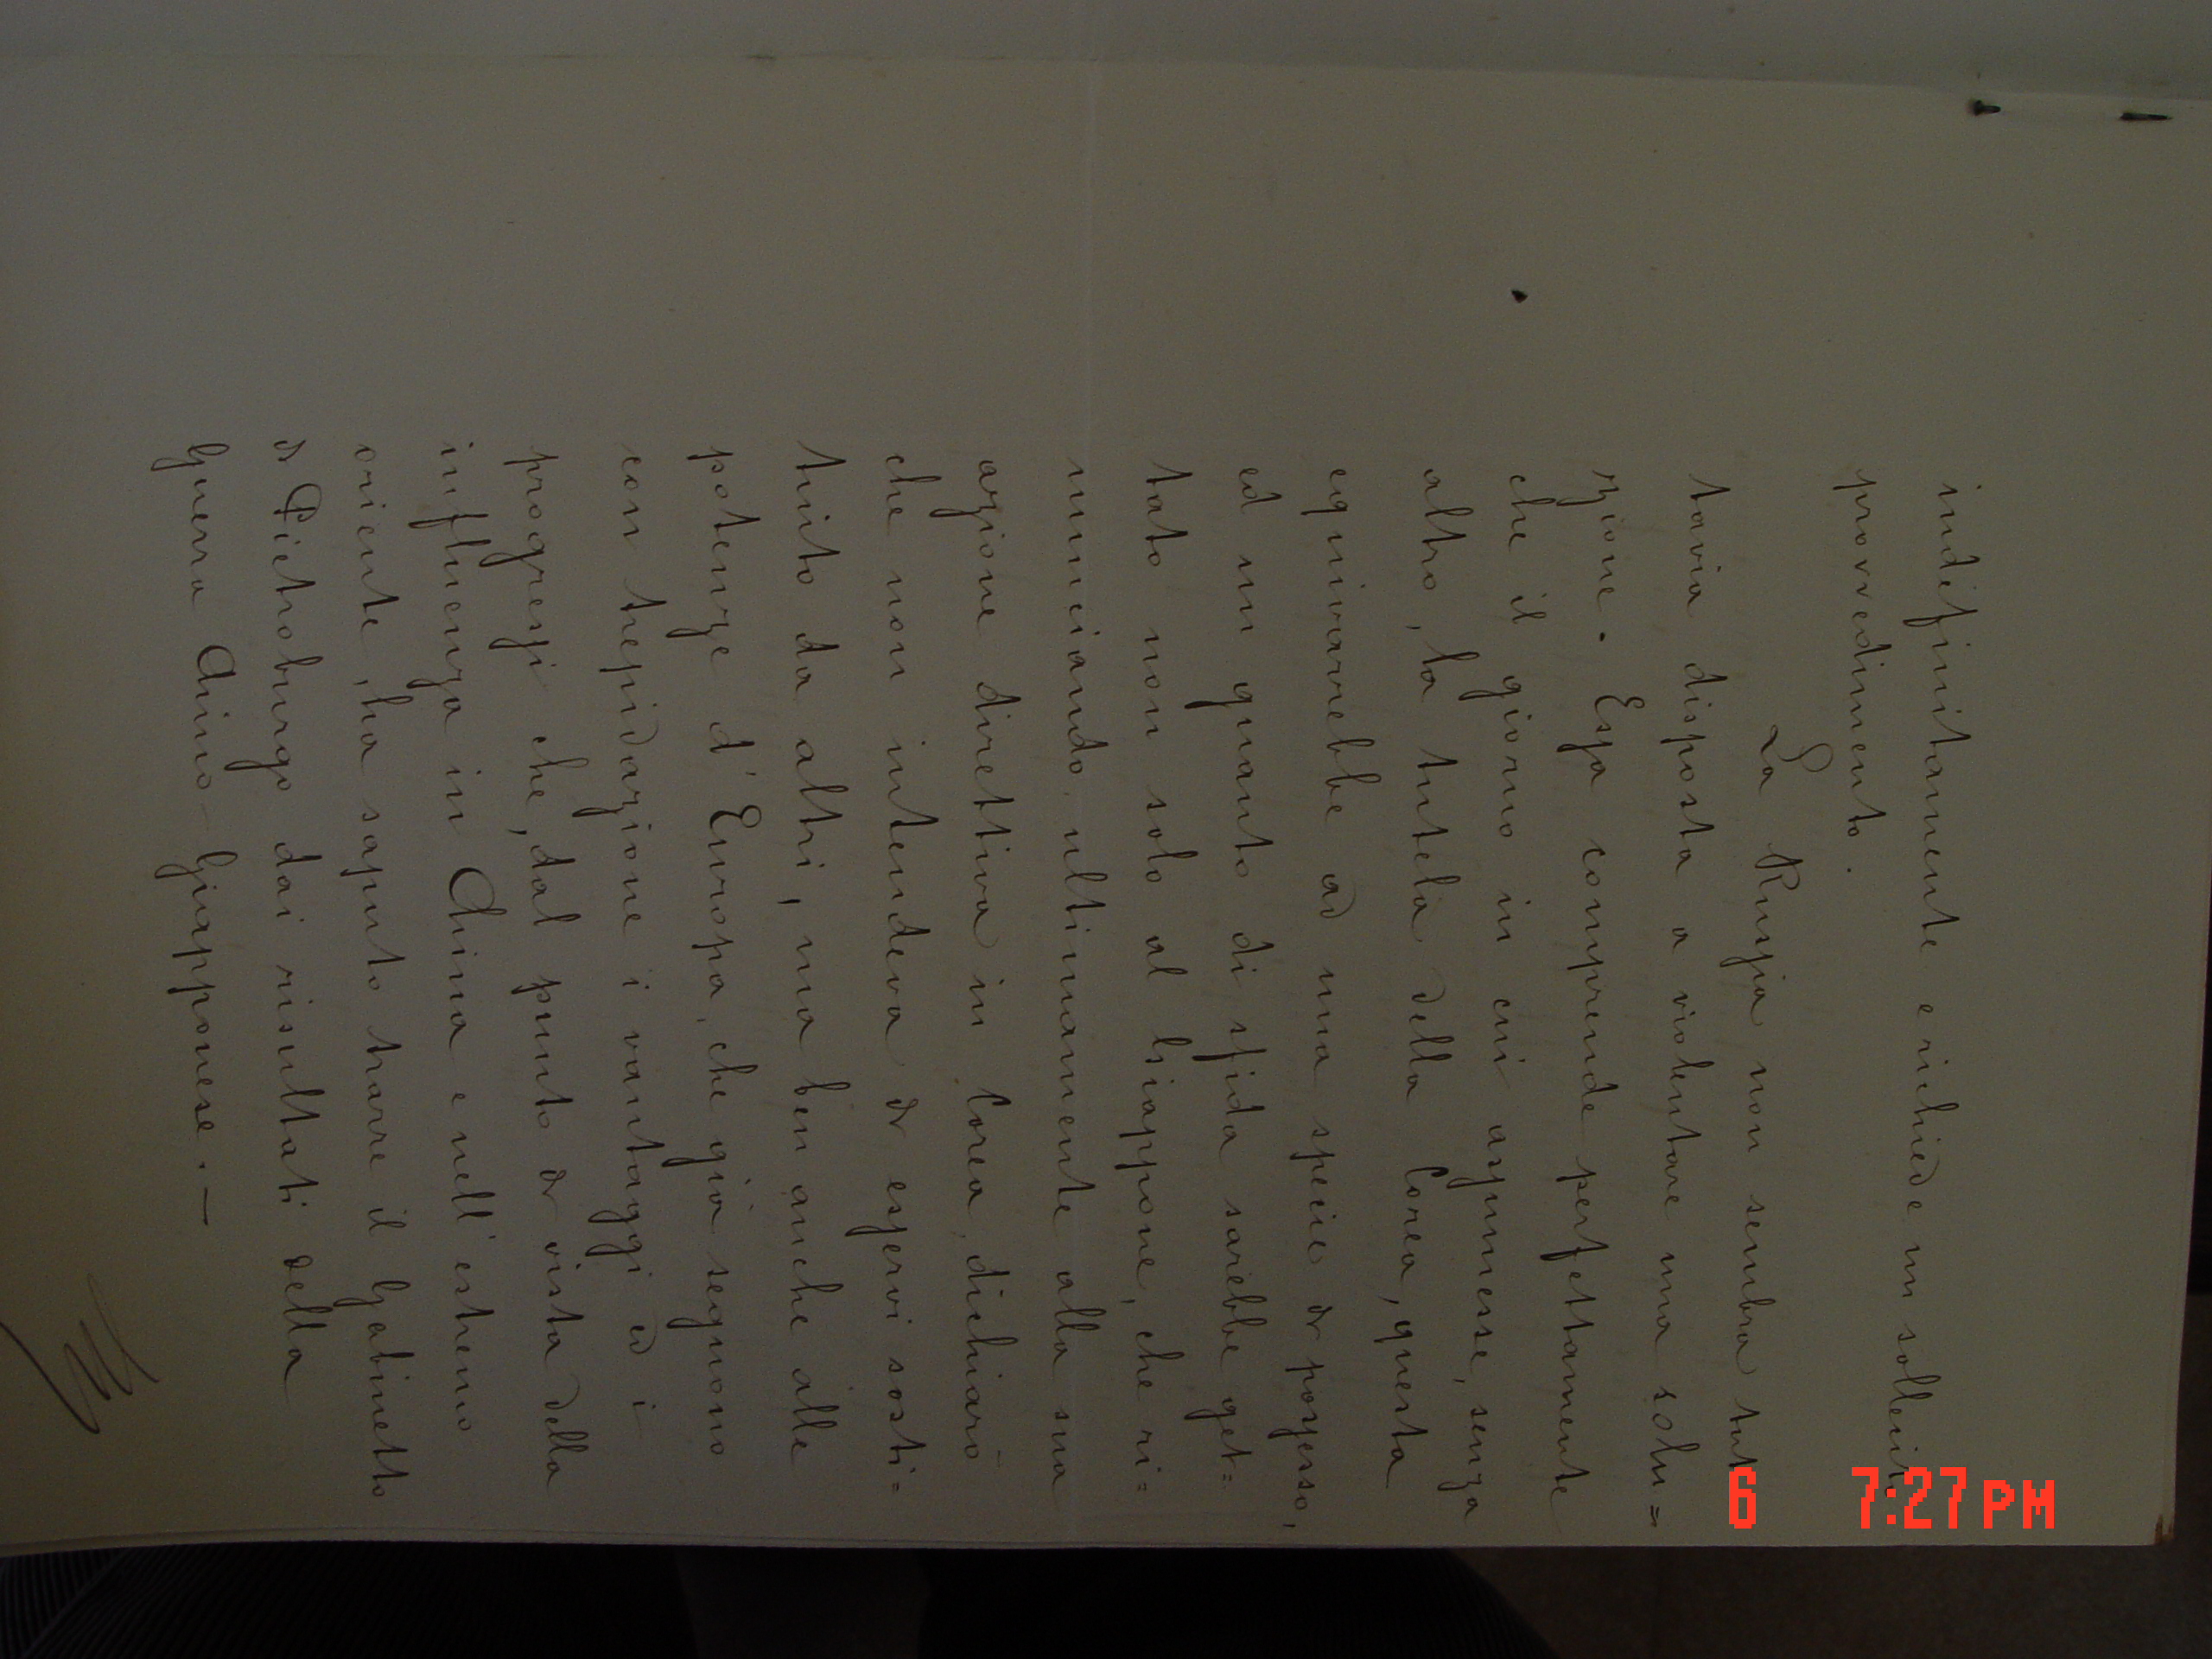 indefinitamente e richiede un sollecito
provvedimento.
La Russia non sembra tut
tavia disposta a violentare una solu=
zione. Essa comprende perfettamente
che il giorno in cui assumesse, senza
altro, la tutela della Corea, questa
equivarrebbe ad una specie di possesso,
ed un guanto di sfida sarebbe get=
tato non solo al Giappone, che ri=
nunciando ultimamente alla sua
azione direttiva in Corea, dichiarò
che non intendeva di esservi sosti=
tuito da altri, ma ben anche alle
potenze d'Europa, che già seguono
con trepidazione i vantaggi ed i
progressi che, dal punto di vista della
influenza in China e nell'estremo
oriente, ha saputo trarre il Gabinetto
di Pietroburgo dai risultati della
Guerra Chino-Giapponese. —
6 7:27 PM